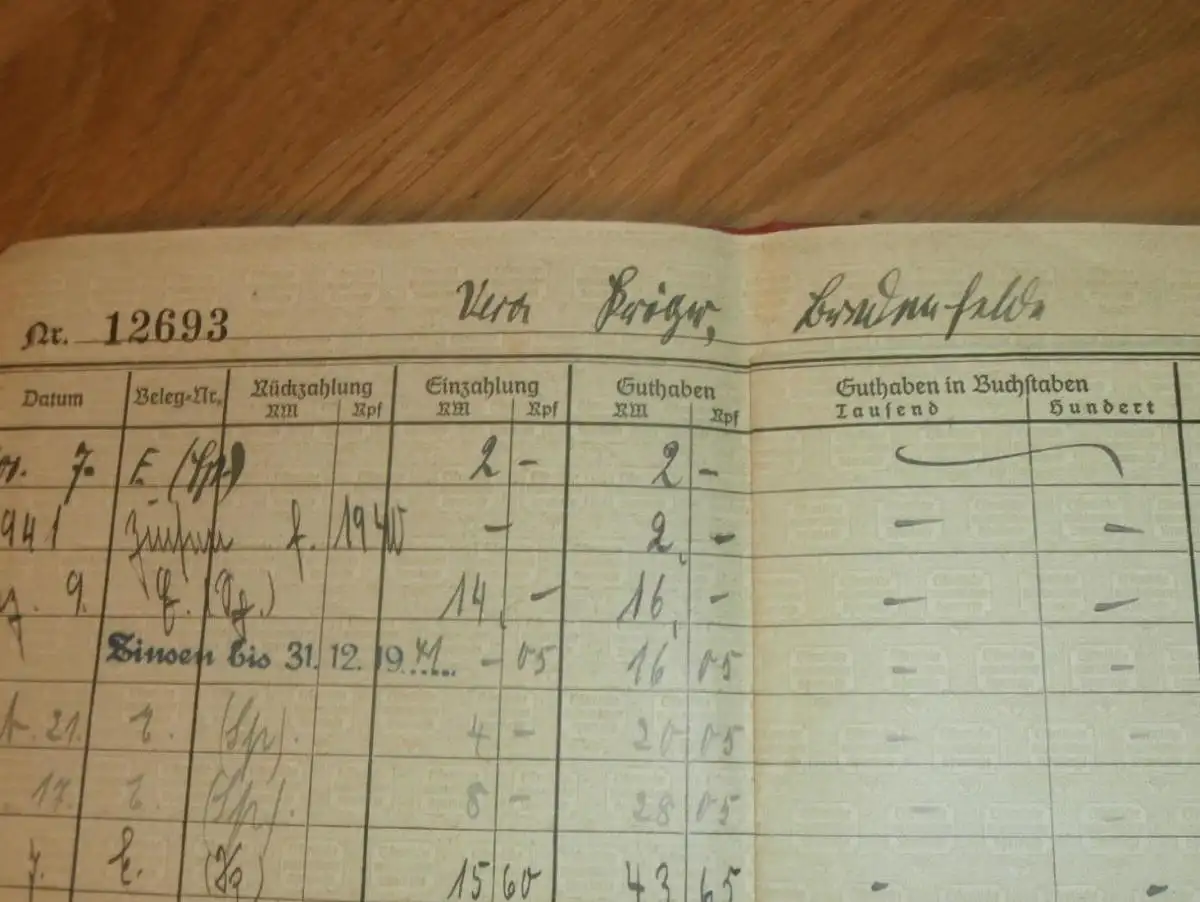 Nr. 12693 Vera Krüger, Bredenfelde
Datum Beleg-Nr. Rückzahlung Einzahlung Guthaben Guthaben in Buchstaben
RM Rpf RM Rpf RM Rpf Tausend Hundert
7. E. (Sp.) 2 – 2 –
941 Zinsen f. 1940 – 2, – – –
9. E. 14, – 16, – – –
Zinsen bis 31. 12. 1941 – 05 16 05 – –
21. E. (Sp). 4 – 20 05 – –
17. E. (Sp). 8 – 28 05 – –
7. E. 15 60 43 65 – –